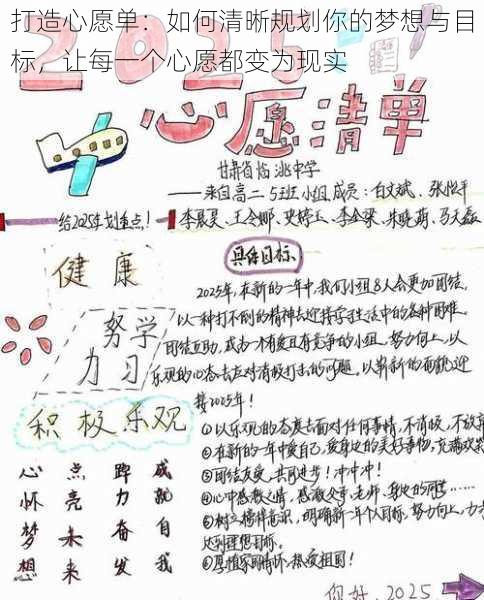 打造心愿单：如何清晰规划你的梦想与目
标，让每一个心愿都变为现实
2025
心愿清单
甘肃省临洮中学
——来自高二5班小组成员：白文斌、张怡平
给2025年划重点！
李晨昊、王令娜、史婷玉、李金梁、朱晓萌、马天磊
具体目标
健康
努力学习
积极乐观
2025年，在新的一年中，我们小组8人会更加团结，
以一种打不倒的精神去迎接学习生活中的各种困难。
团结互助，成为一个有爱且有竞争的小组，努力向上，以
乐观的心态去应对消极打击的问题，以崭新的面貌迎
接2025年！
①以乐观的态度去面对任何事情，不消极，不放弃
②在新的一年中爱自己，爱身边的美好事物，充满欢笑
③团结友爱，共同进步！冲冲冲！
④心中感激之情，感激父母、老师、身边的同学……
⑤树立榜样意识，明确新一年个人目标，努力向上，力争
达到理想目标。
⑥厚植家国情怀，热爱祖国！
心怀梦想
点亮未来
踔力奋发
成就自我
你好，2025